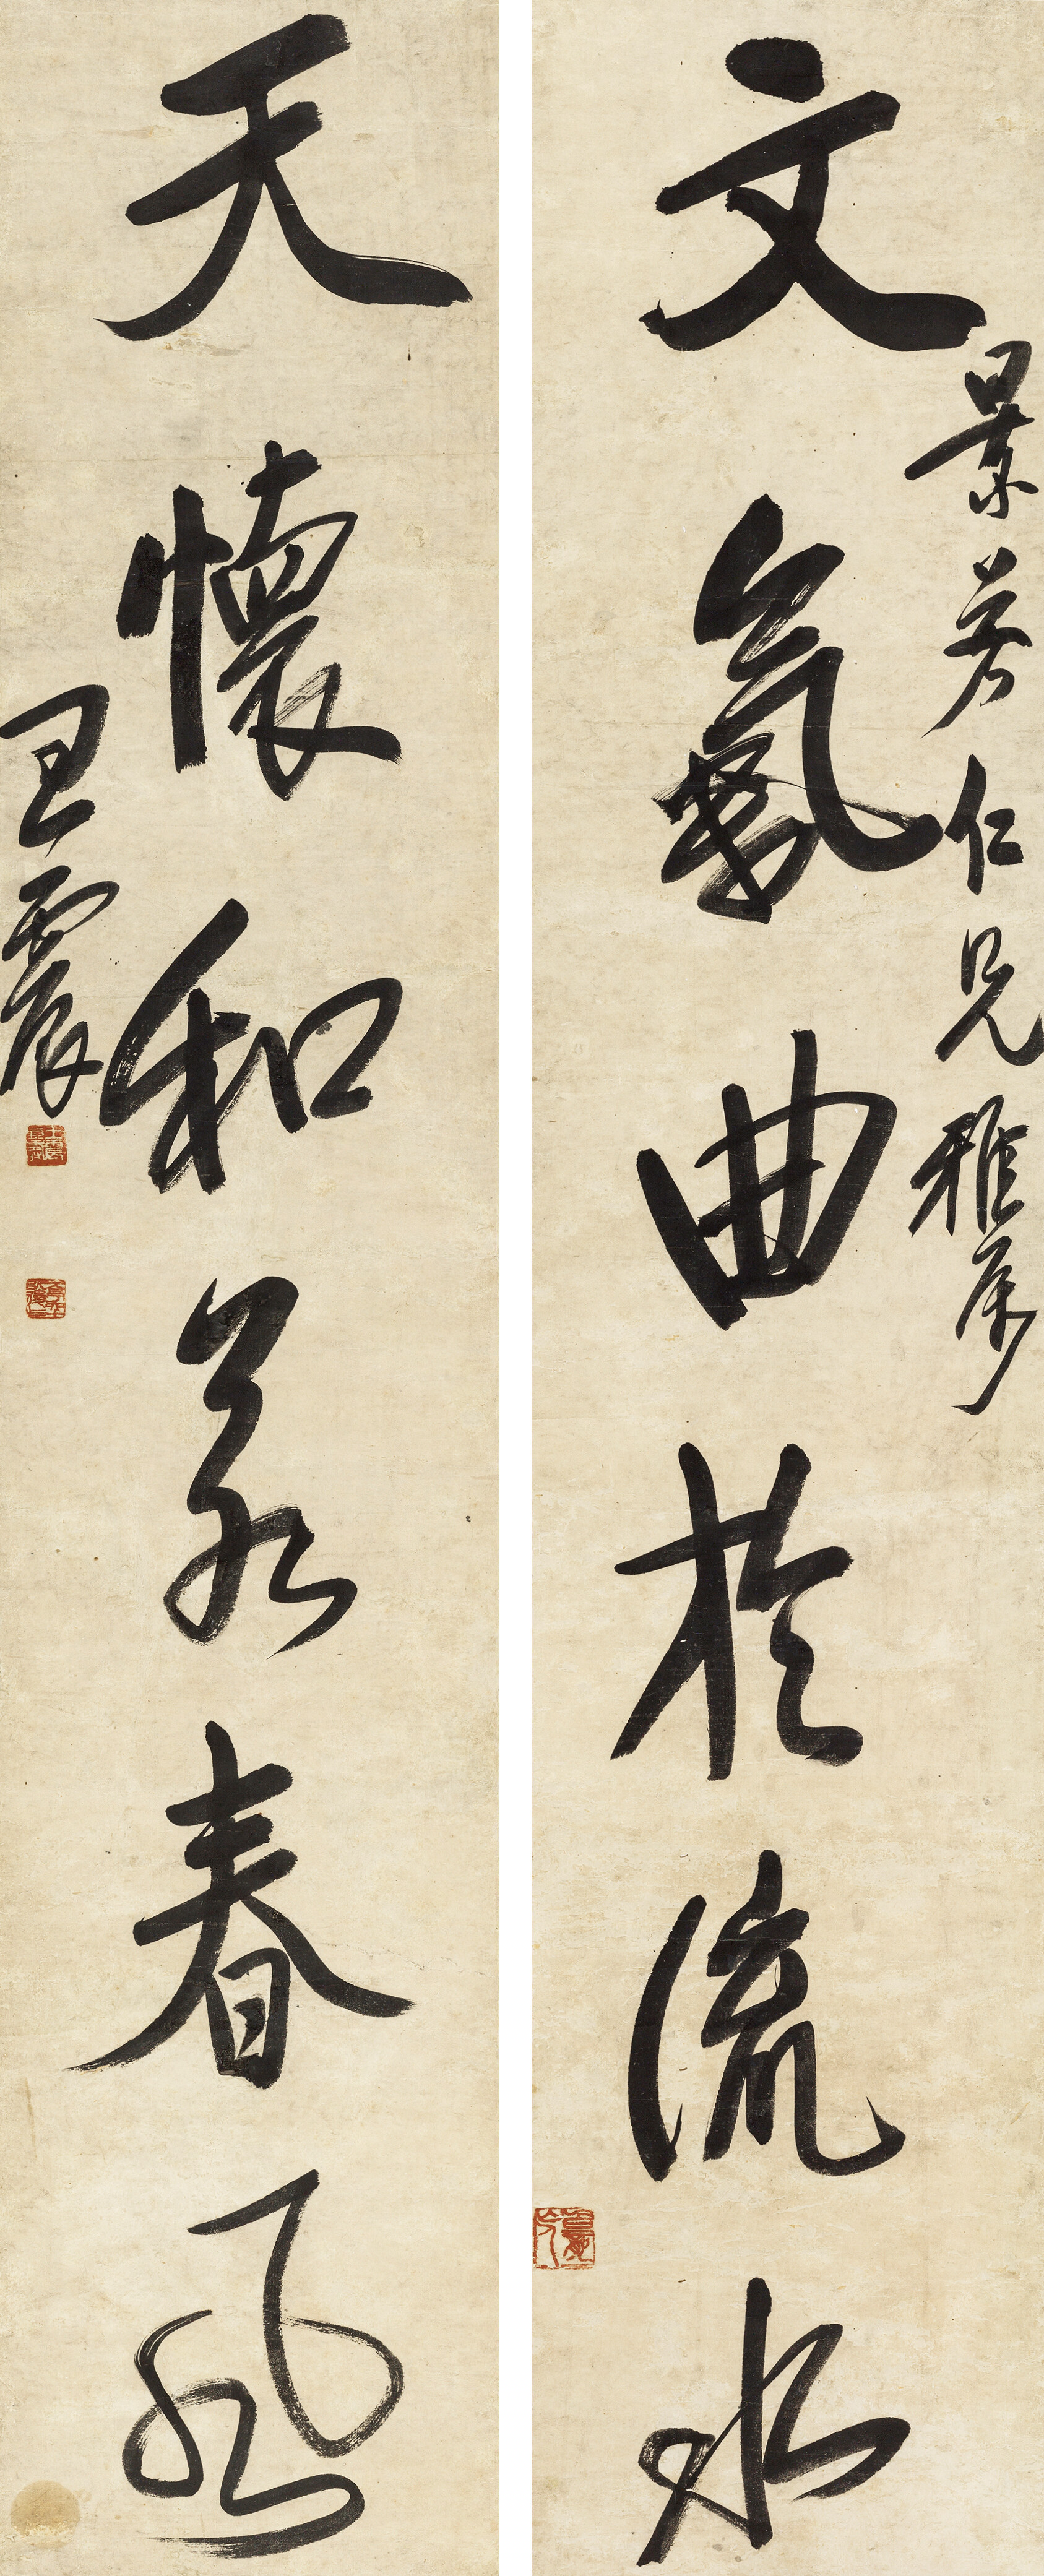 文氣曲於流水
景芳仁兄雅屬
天懷和若春風
王震
王震